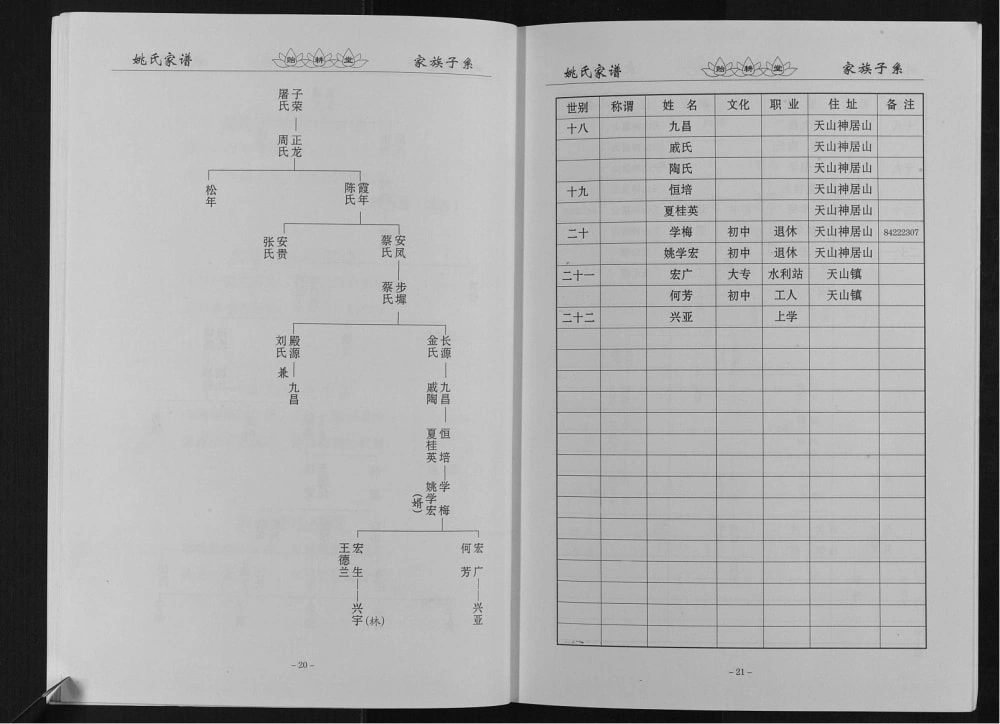 姚氏家谱 贻耕堂 家族子系
子荣 屠氏
正龙 周氏
松年 霞年 陈氏
安贵 张氏 安凤 蔡氏
步墀 蔡氏
殿源 刘氏 长源 金氏
兼 九昌 九昌 戚陶
恒培 夏桂英
学梅 姚学宏 (婿)
宏生 王德兰 宏广 何芳
兴宇 (林) 兴亚
-20-
姚氏家谱 贻耕堂 家族子系
世别 称谓 姓名 文化 职业 住址 备注
十八 九昌 天山神居山
戚氏 天山神居山
陶氏 天山神居山
十九 恒培 天山神居山
夏桂英 天山神居山
二十 学梅 初中 退休 天山神居山 84222307
姚学宏 初中 退休 天山神居山
二十一 宏广 大专 水利站 天山镇
何芳 初中 工人 天山镇
二十二 兴亚 上学
-21-